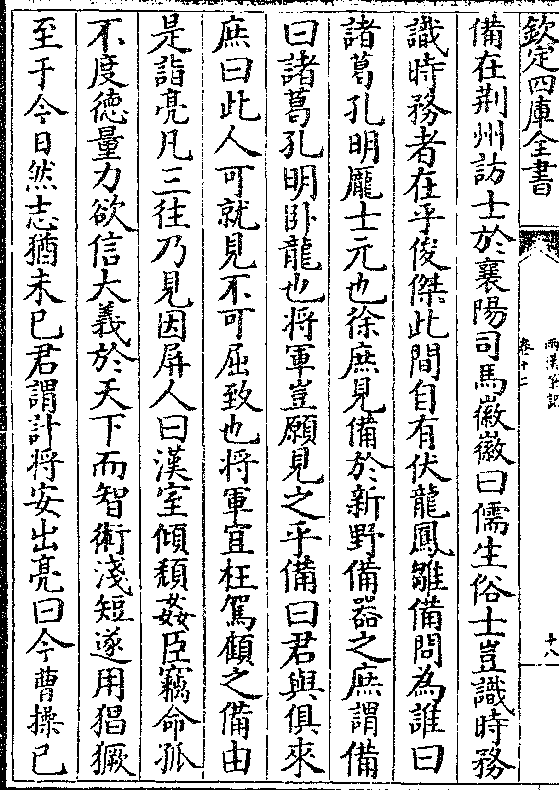 欽定四庫全書
兩漢筆記
卷十二
十八
備在荆州訪士於襄陽司馬徽徽曰儒生俗士豈識時務
識時務者在乎俊傑此間自有伏龍鳳雛備問為誰曰
諸葛孔明龐士元也徐庶見備於新野備器之庶謂備
曰諸葛孔明卧龍也將軍豈願見之乎備曰君與俱來
庶曰此人可就見不可屈致也將軍宜枉駕顧之備由
是詣亮凡三往乃見因屏人曰漢室傾頽姦臣竊命孤
不度徳量力欲信大義於天下而智術淺短遂用猖獗
至于今日然志猶未已君謂計將安出亮曰今曹操已